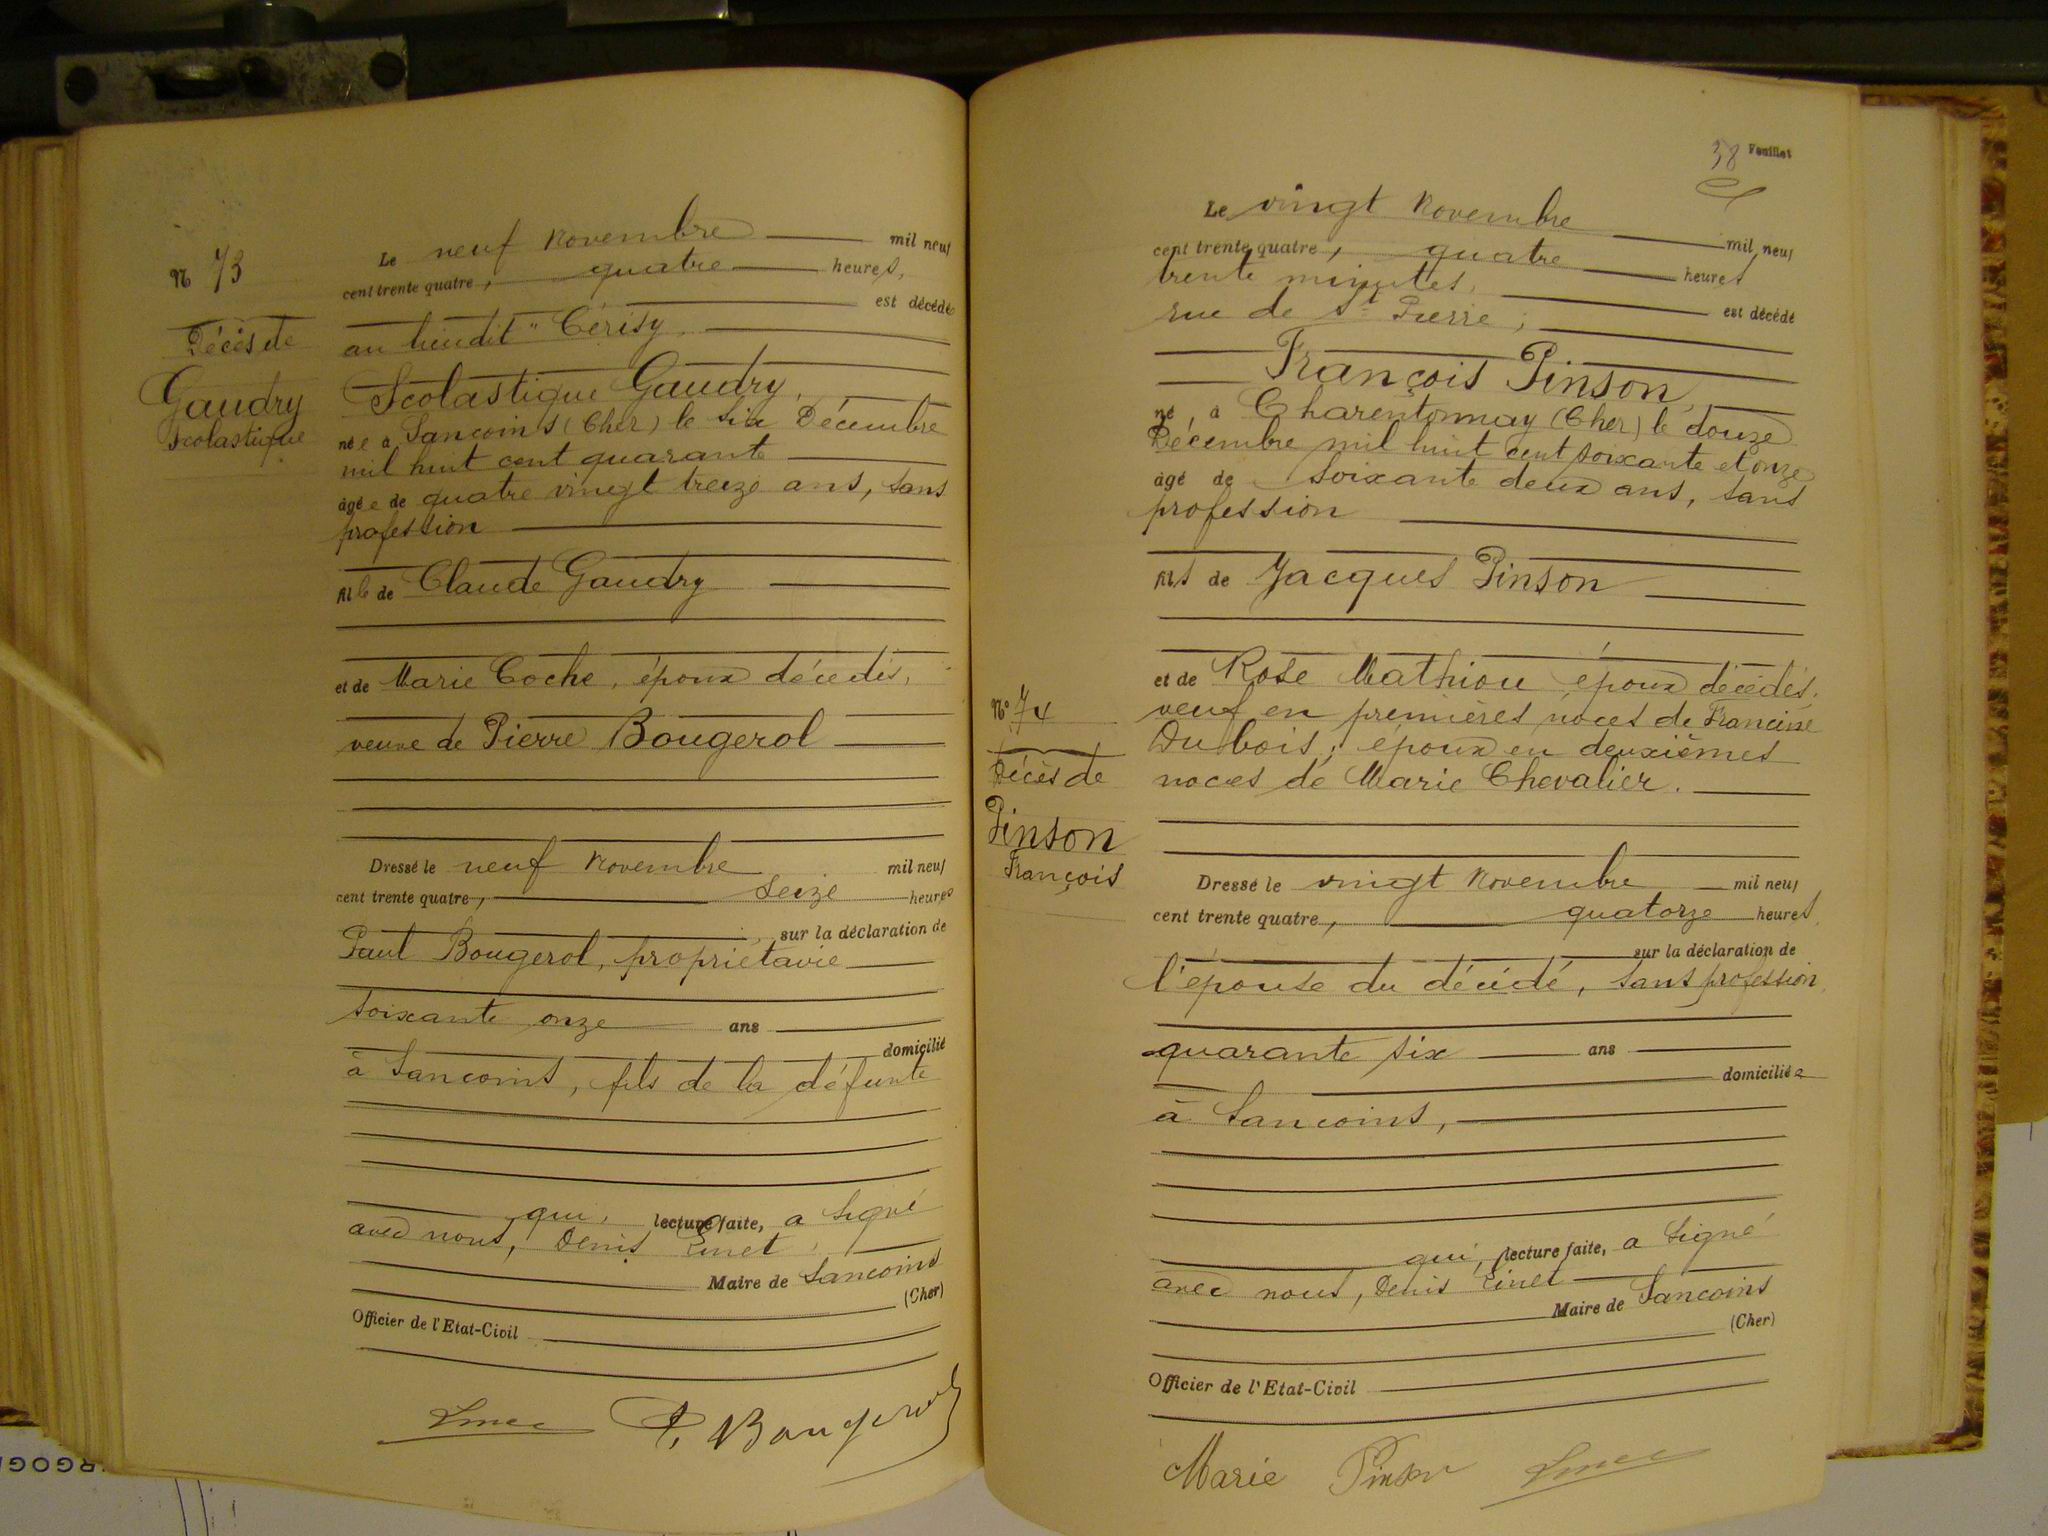 N 73
Décès de
Gaudry
Scolastique
Le neuf Novembre mil neuf
cent trente quatre, quatre heures,
est décédée
au lieudit "Cérisy,
Scolastique Gaudry,
née à Sancoins (Cher) le six Décembre
mil huit cent quarante
âgée de quatre vingt treize ans, sans
profession
fille de Claude Gaudry
et de Marie Coche, époux décédés,
veuve de Pierre Bougerol
Dressé le neuf Novembre mil neuf
cent trente quatre, seize heures
sur la déclaration de
Paul Bougerol, propriétaire
soixante onze ans
domicilié
à Sancoins, fils de la défunte
qui, lecture faite, a signé
avec nous, Denis
Maire de Sancoins
(Cher)
Officier de l'Etat-Civil
P. Bougerol
38 Feuillet
N° 74
Décès de
Pinson
François
Le vingt Novembre mil neuf
cent trente quatre, quatre heures
trente minutes,
rue de St Pierre, est décédé
François Pinson
né à Charentonnay (Cher) le douze
Décembre mil huit cent soixante et onze
âgé de soixante deux ans, sans
profession
fils de Jacques Pinson
et de Rose Mathiou époux décédés.
veuf en premières noces de Francine
Dubois; époux en deuxièmes
noces de Marie Chevalier.
Dressé le vingt Novembre mil neuf
cent trente quatre, quatorze heures,
sur la déclaration de
l'épouse du décédé, sans profession,
quarante six ans
domiciliée
à Sancoins,
qui, lecture faite, a signé
avec nous, Denis
Maire de Sancoins
(Cher)
Officier de l'Etat-Civil
Marie Pinson